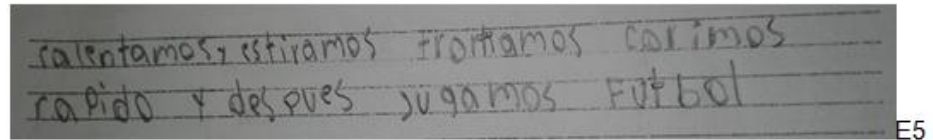 calentamos, estiramos trotamos corimos
rapido y despues jugamos Futbol
E5